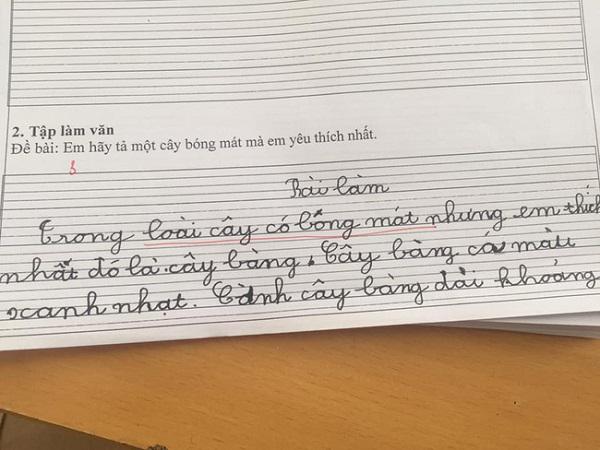 2. Tập làm văn
Đề bài: Em hãy tả một cây bóng mát mà em yêu thích nhất.
Bài làm
Trong loài cây có bống mát nhưng em thích
nhất đó là cây bàng. Cây bàng có màu
xanh nhạt. Cành cây bàng dài khoảng